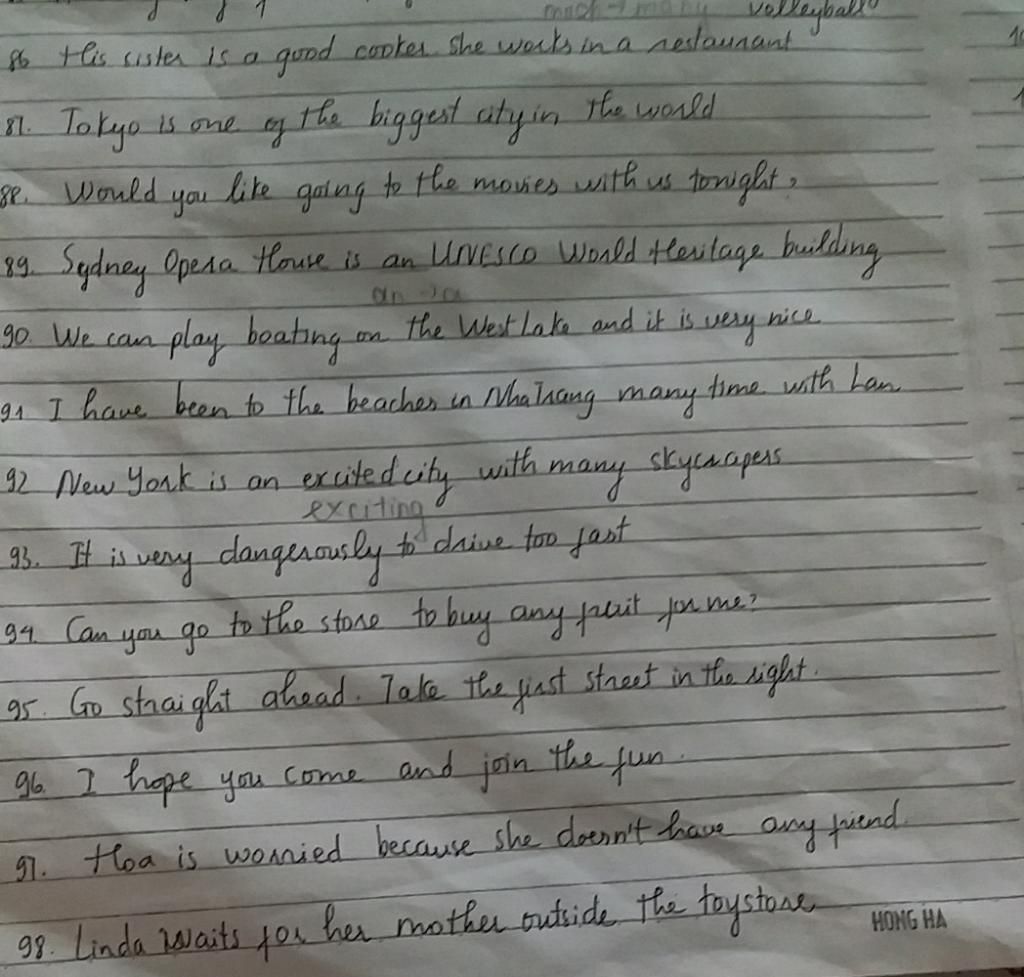 much → many volleyball
86 His sister is a good cooker she works in a restaurant
87. Tokyo is one of the biggest city in the world
88. Would you like going to the movies with us tonight?
89. Sydney Opera House is an UNESCO World Heritage building
an → a
90. We can play boating on the West Lake and it is very nice
91 I have been to the beaches in Nha Trang many time with Lan
92 New York is an excited city with many skycrapers
exciting
93. It is very dangerously to drive too fast
94. Can you go to the store to buy any fruit for me?
95. Go straight ahead. Take the first street in the right.
96. I hope you come and join the fun.
97. Hoa is worried because she doesn't have any friend.
98. Linda waits for her mother outside the toystore
HONG HA